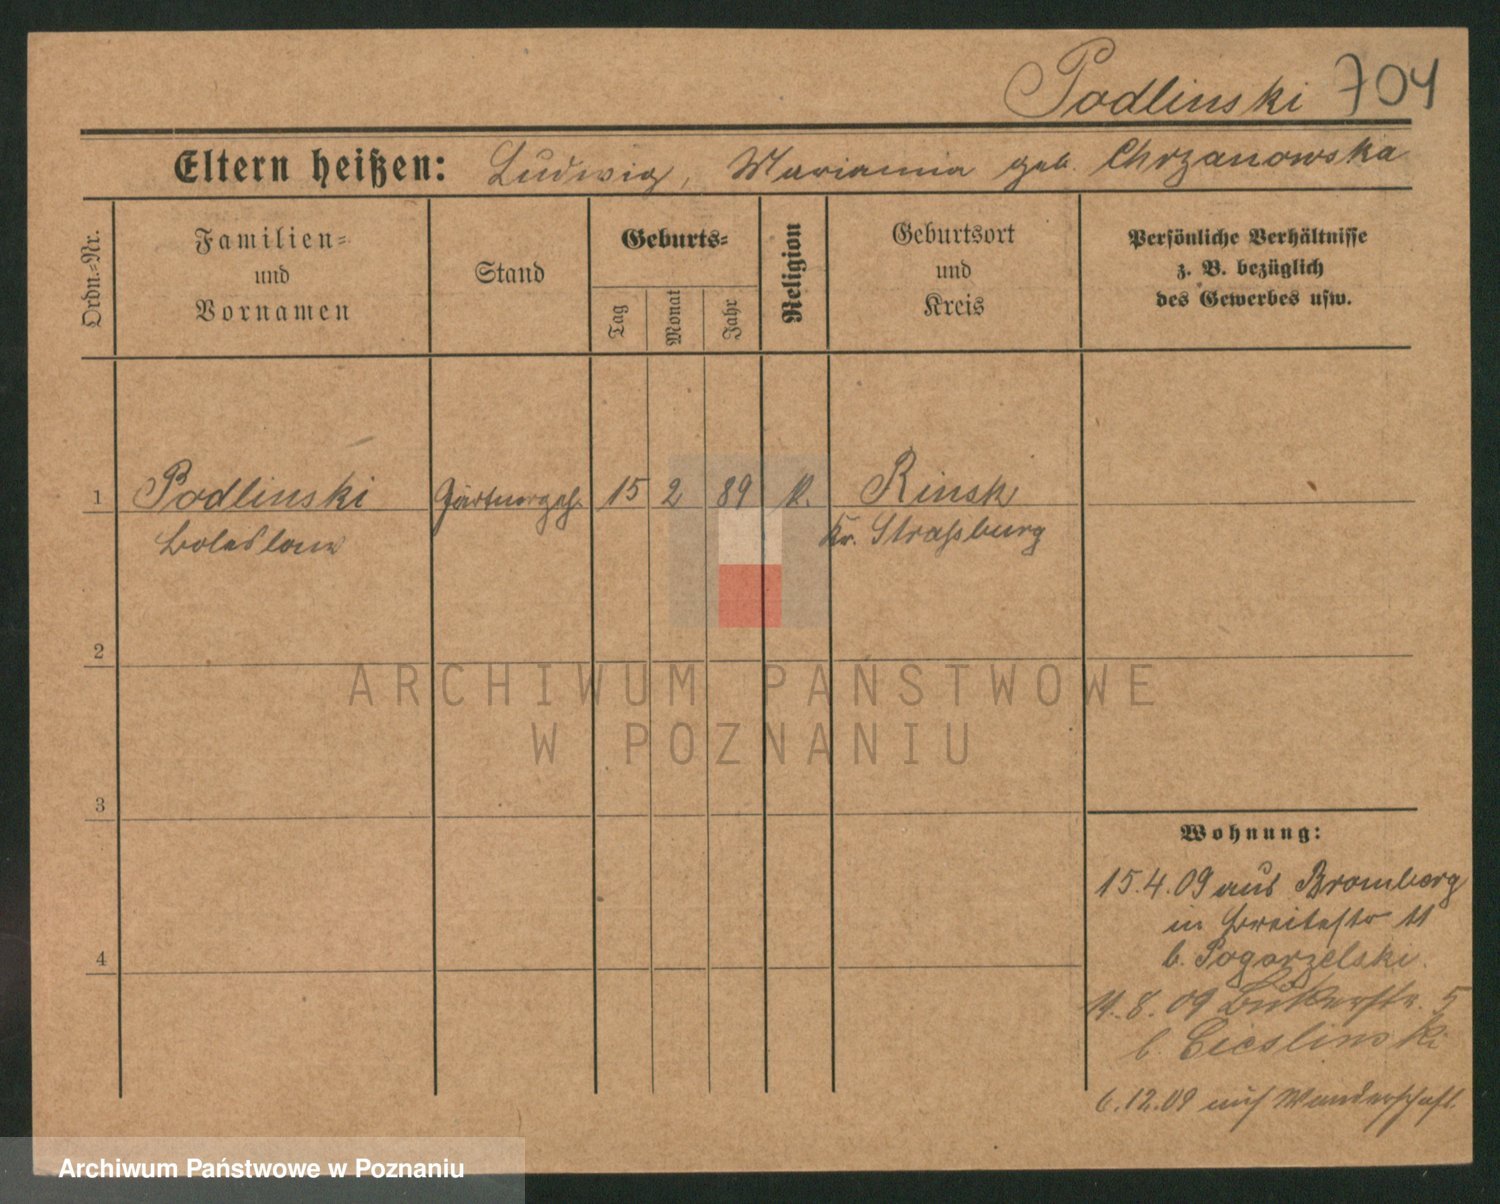 Podlinski 704
Eltern heißen: Ludwig, Marianna geb. Chrzanowska
Ordn.-Nr.
Familien-
und
Vornamen
Stand
Geburts-
Tag
Monat
Jahr
Religion
Geburtsort
und
Kreis
Persönliche Verhältnisse
z. B. bezüglich
des Gewerbes usw.
1 Podlinski Gärtnergeh. 15 2 89 K. Rinsk
Boleslaus Kr. Straßburg
2
3
4
Wohnung:
15.4.09 aus Bromberg
in Breitestr 11
b. Pogorzelski.
14.8.09 Bükerstr. 5
b. Cieslinski
6.12.09 auf Wanderschaft.
ARCHIWUM PAŃSTWOWE
W POZNANIU
Archiwum Państwowe w Poznaniu